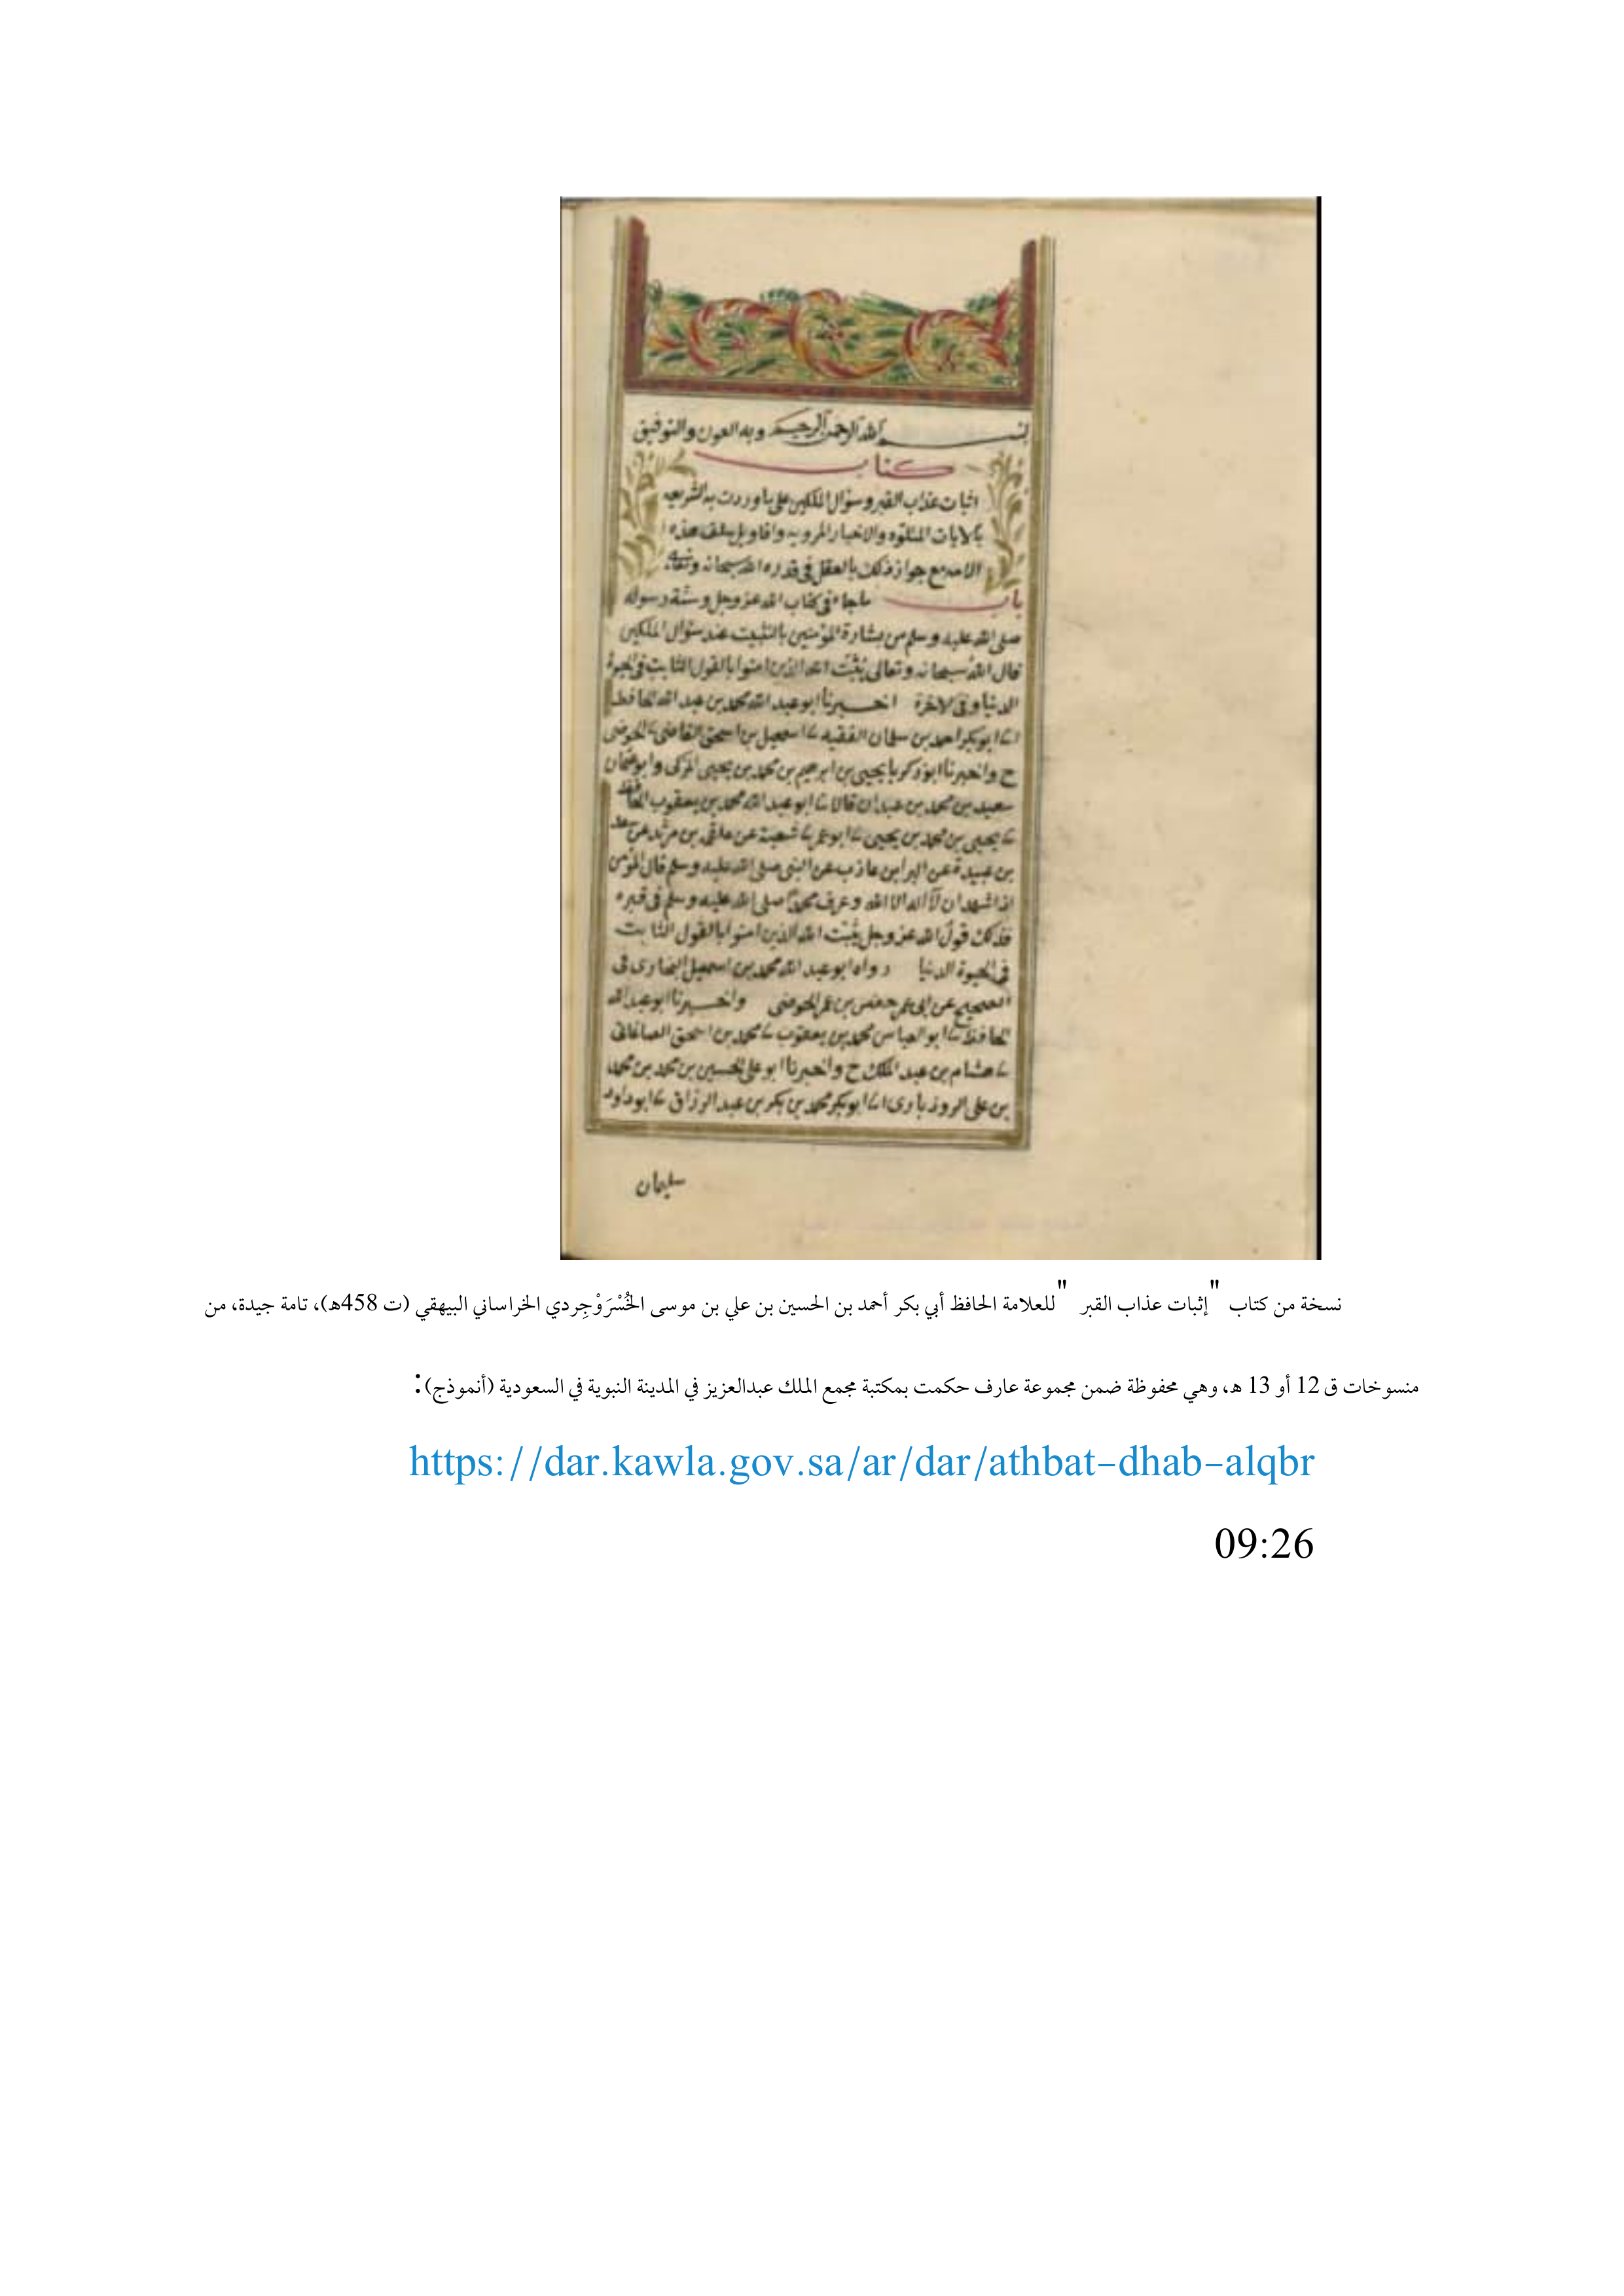 بسم الله الرحمن الرحيم وبه العون والتوفيق
كتاب
اثبات عذاب القبر وسؤال الملكين على ما وردت به الشريعه
بالايات المتلوه والاخبار المرويه واقاويل سلف هذه
الامه مع جواز ذلك بالعقل في قدره الله سبحانه وتعالى
باب ما جاء في كتاب الله عز وجل وسنة رسوله
صلى الله عليه وسلم من بشارة المؤمنين بالتثبيت عند سؤال الملكين
قال الله سبحانه وتعالى يثبّت الله الذين امنوا بالقول الثابت في الحيوة
الدنيا وفي الاخرة اخبرنا ابو عبد الله محمد بن عبد الله الحافظ
ابو بكر احمد بن سلمان الفقيه اسمعيل بن اسحق القاضي الحوضى
ح واخبرنا ابو زكريا يحيى بن ابرهيم بن محمد بن يحيى المزكى وابو عثمان
سعيد بن محمد بن عبدان قالا ابو عبد الله محمد بن يعقوب الحافظ
يحيى بن محمد بن يحيى ابو عمر شعبة عن علقمة بن مرثد عن سعد
بن عبيدة عن البرا بن عازب عن النبي صلى الله عليه وسلم قال المؤمن
اذا شهد ان لا اله الا الله وعرف محمدا صلى الله عليه وسلم في قبره
فذلك قول الله عز وجل يثبّت الله الذين امنوا بالقول الثابت
في الحيوة الدنيا رواه ابو عبد الله محمد بن اسمعيل البخارى فى
الصحيح عن ابى عمر حفص بن عمر الحوضى واخبرنا ابو عبد الله
الحافظ ابو العباس محمد بن يعقوب محمد بن اسحق الصاغانى
هشام بن عبد الملك ح واخبرنا ابو على الحسين بن محمد بن محمد
بن على الروذبارى ابو بكر محمد بن بكر بن عبد الرزاق ابو داود
سليمان
نسخة من كتاب "إثبات عذاب القبر" للعلامة الحافظ أبي بكر أحمد بن الحسين بن علي بن موسى الخُسْرَوْجِردي الخراساني البيهقي (ت 458هـ)، تامة جيدة، من
منسوخات ق 12 أو 13 هـ، وهي محفوظة ضمن مجموعة عارف حكمت بمكتبة مجمع الملك عبدالعزيز في المدينة النبوية في السعودية (أنموذج):
https://dar.kawla.gov.sa/ar/dar/athbat-dhab-alqbr
09:26